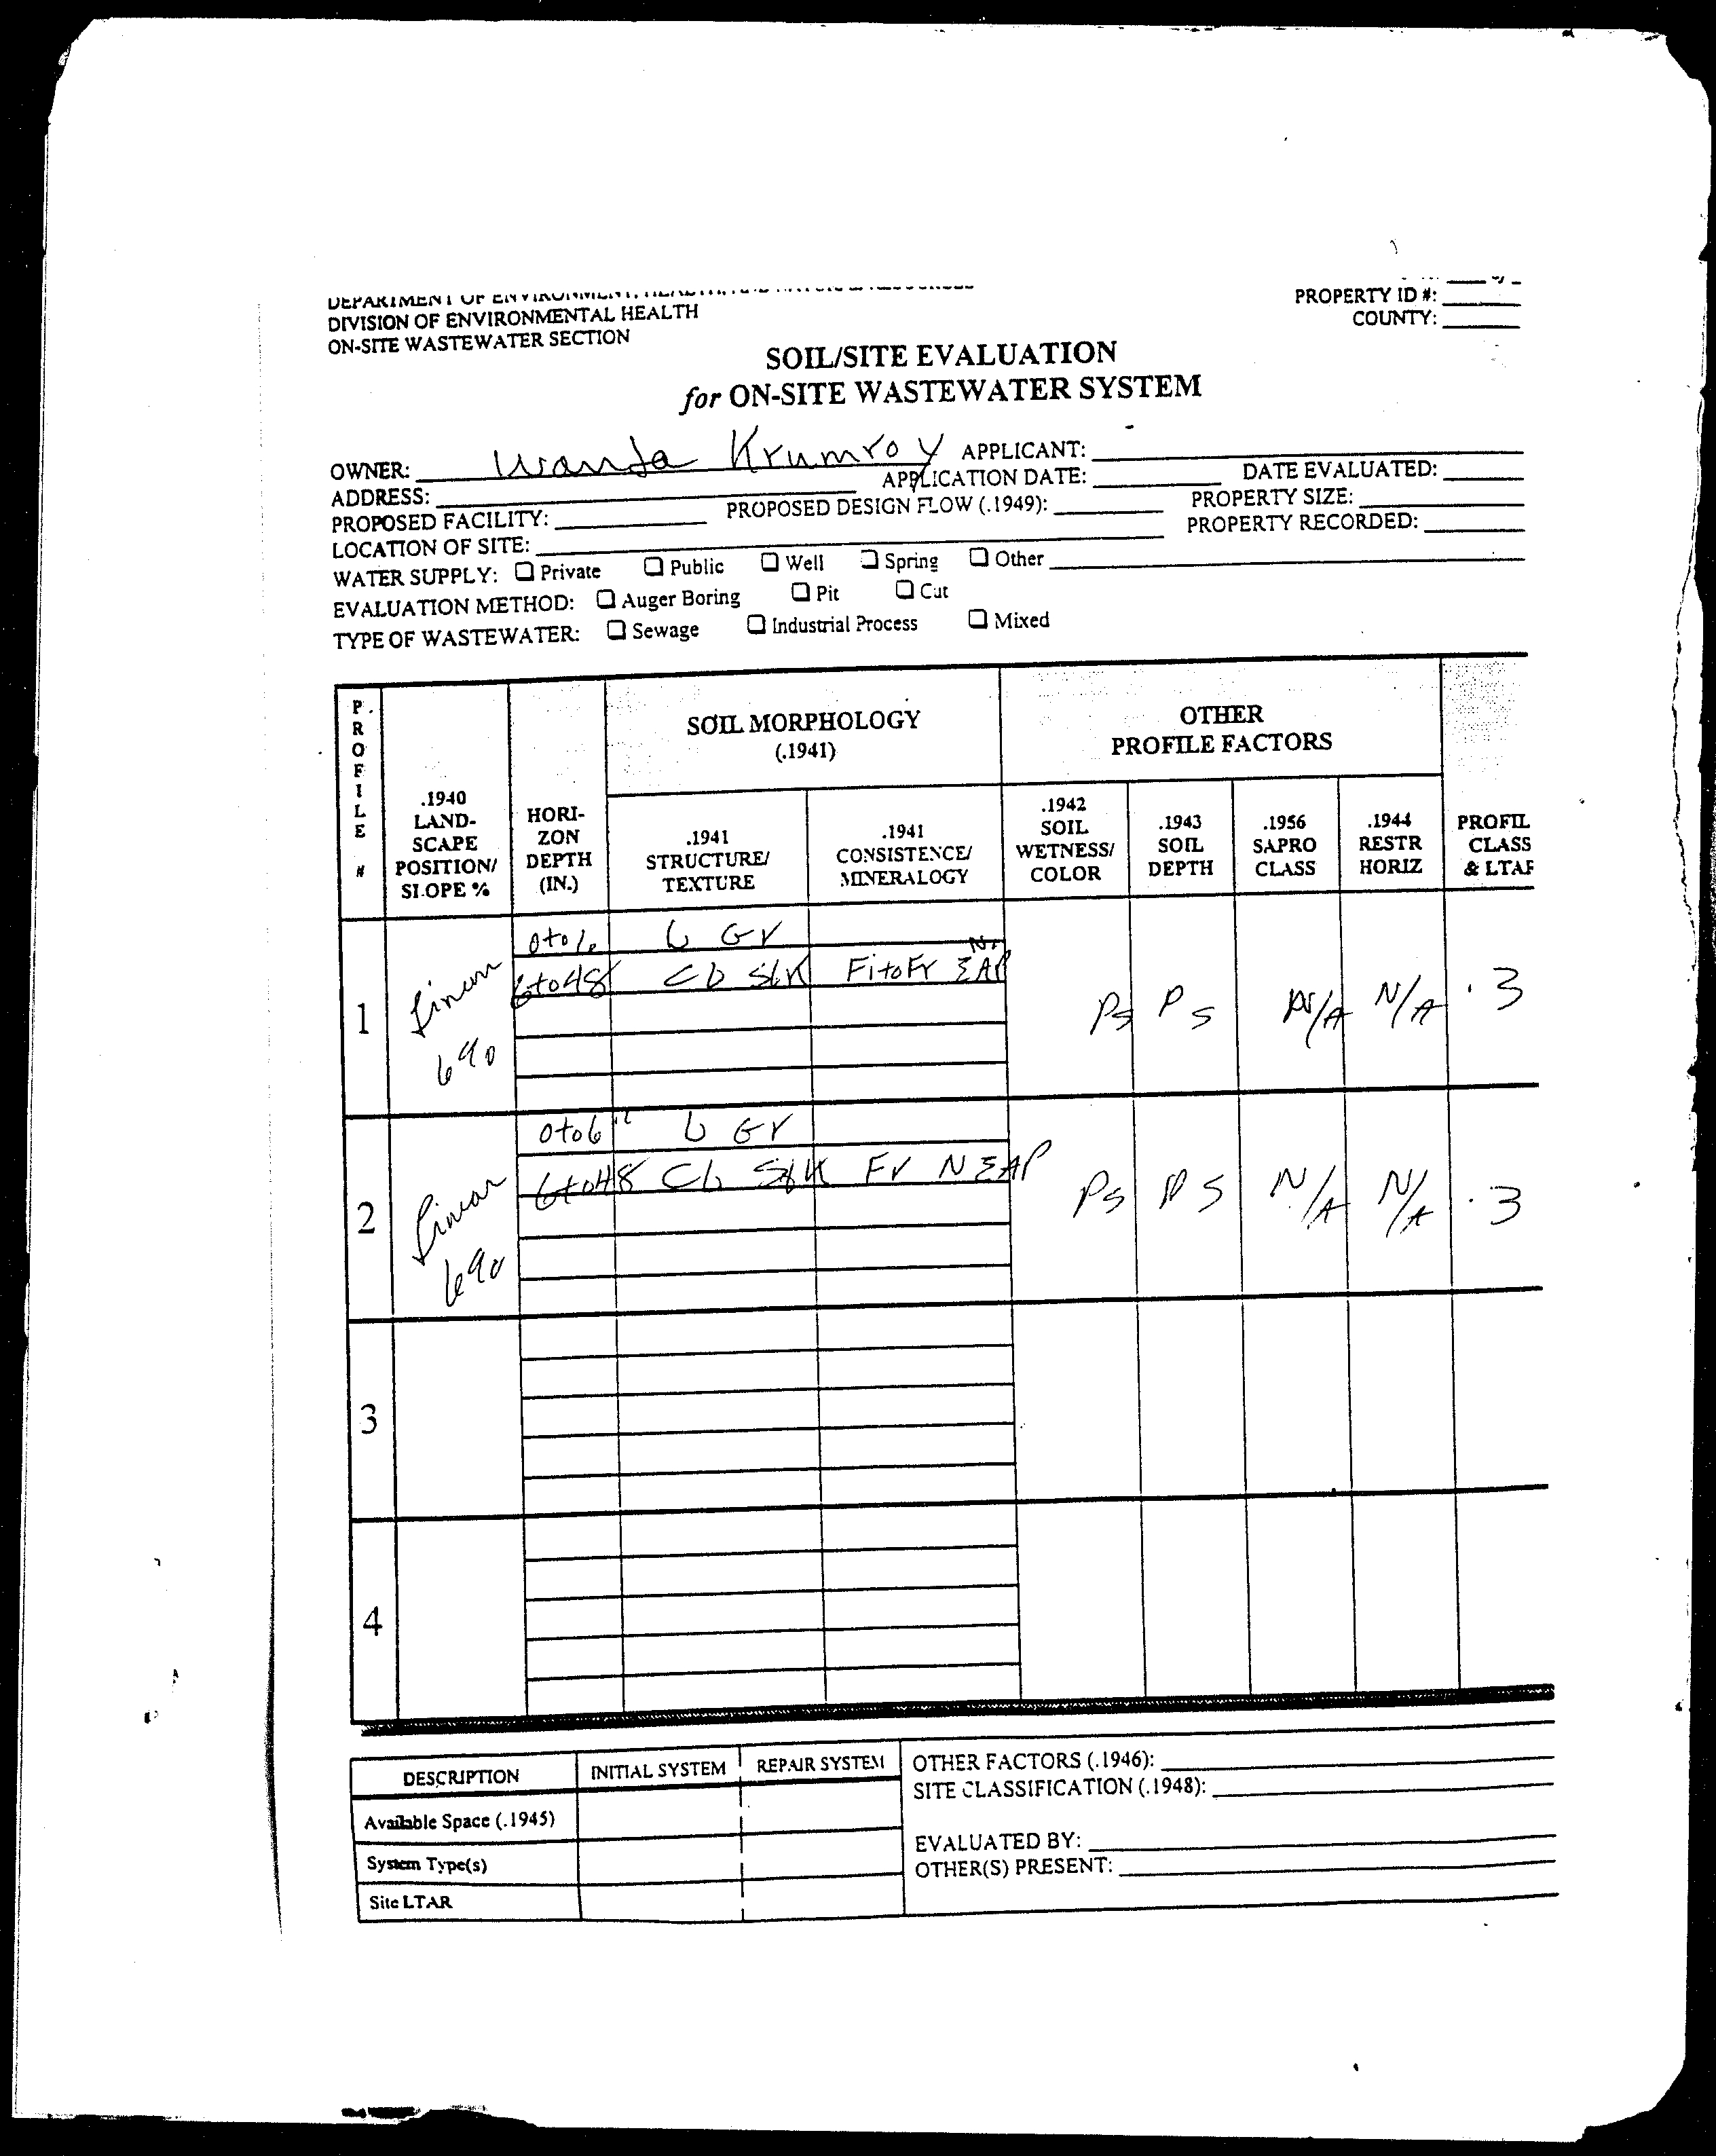 DEPARTMENT OF ENVIRONMENT, HEALTH,
DIVISION OF ENVIRONMENTAL HEALTH
ON-SITE WASTEWATER SECTION
PROPERTY ID #:
COUNTY:
SOIL/SITE EVALUATION
for ON-SITE WASTEWATER SYSTEM
OWNER: Wanda Krumroy APPLICANT:
ADDRESS: APPLICATION DATE: DATE EVALUATED:
PROPOSED FACILITY: PROPOSED DESIGN FLOW (.1949): PROPERTY SIZE:
LOCATION OF SITE: PROPERTY RECORDED:
WATER SUPPLY: Private Public Well Spring Other
EVALUATION METHOD: Auger Boring Pit Cut
TYPE OF WASTEWATER: Sewage Industrial Process Mixed
PROFILE #
.1940 LAND-SCAPE POSITION/ SLOPE %
HORI-ZON DEPTH (IN.)
SOIL MORPHOLOGY
(.1941)
.1941 STRUCTURE/ TEXTURE
.1941 CONSISTENCE/ MINERALOGY
OTHER
PROFILE FACTORS
.1942 SOIL WETNESS/ COLOR
.1943 SOIL DEPTH
.1956 SAPRO CLASS
.1944 RESTR HORIZ
PROFIL CLASS & LTAR
1 Linear 6%
0to6 L Gr
6to48 CL SBK FitoFr
PS PS N/A N/A .3
2 Linear 6%
0to6" L Gr
6to48 CL SBK Fr
PS PS N/A N/A .3
3
4
DESCRIPTION INITIAL SYSTEM REPAIR SYSTEM
Available Space (.1945)
System Type(s)
Site LTAR
OTHER FACTORS (.1946):
SITE CLASSIFICATION (.1948):
EVALUATED BY:
OTHER(S) PRESENT: